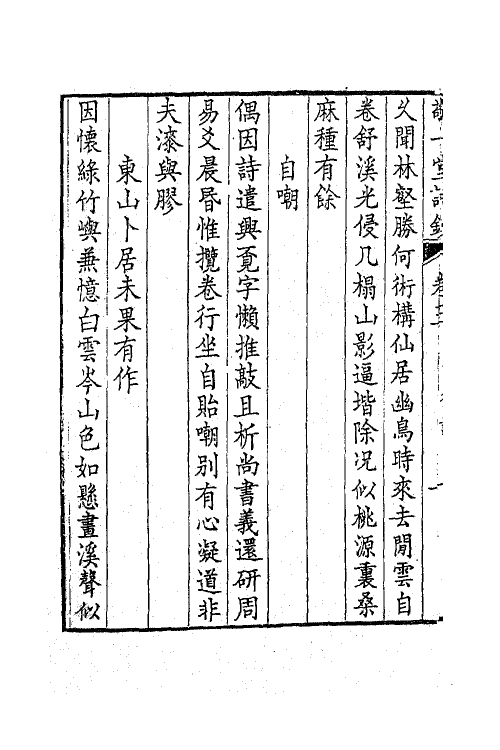 敬一堂詩鈔
卷十
久聞林壑勝何術構仙居幽鳥時來去閒雲自
卷舒溪光侵几榻山影逼堦除况似桃源裏桑
麻種有餘
自嘲
偶因詩遣興覔字懶推敲且析尚書義還研周
易爻晨昬惟攬卷行坐自貽嘲别有心凝道非
夫漆與膠
東山卜居未果有作
因懷綠竹嶼兼憶白雲岑山色如懸畫溪聲似